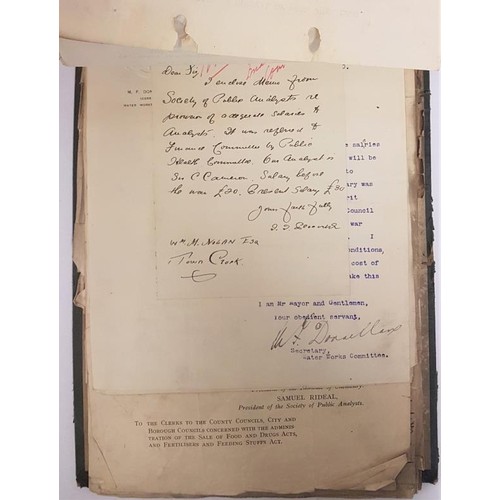 Dear Sir,
I enclose Memo from
Society of Public Analysts re
provision of adequate salaries to
Analysts. It was referred to
Finance Committee by Public
Health Committee. Our Analyst is
Sir C Cameron. Salary before
the war £20. Present Salary £30
Yours faithfully
Wm. M. Nolan Esq
Town Clerk
W. F. DON
WATER WORKS
salaries
will be
to
ary was
rit
Council
war
I
onditions,
cost of
ake this
I am Mr Mayor and Gentlemen,
Your obedient servant,
Secretary,
Water Works Committee.
SAMUEL RIDEAL,
President of the Society of Public Analysts.
TO THE CLERKS TO THE COUNTY COUNCILS, CITY AND
BOROUGH COUNCILS CONCERNED WITH THE ADMINIS
TRATION OF THE SALE OF FOOD AND DRUGS ACTS,
AND FERTILISERS AND FEEDING STUFFS ACT.